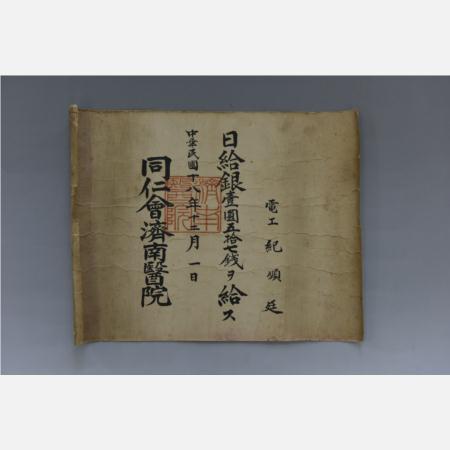 電工 紀順廷
日給銀壹圓五拾七銭ヲ給ス
中華民國十八年十二月一日
同仁會濟南醫院